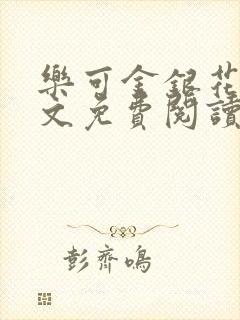 樂可金銀花
文免費閱讀
彭齊鳴